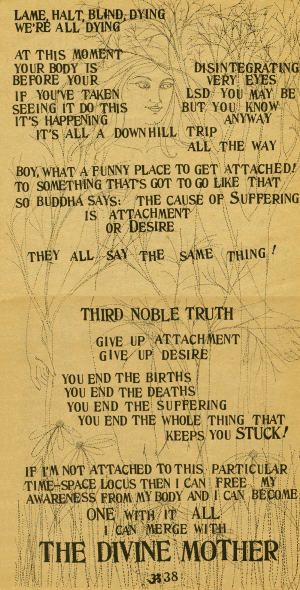 LAME, HALT, BLIND, DYING
WE'RE ALL DYING
AT THIS MOMENT
YOUR BODY IS DISINTEGRATING
BEFORE YOUR VERY EYES
IF YOU'VE TAKEN LSD YOU MAY BE
SEEING IT DO THIS BUT YOU KNOW
IT'S HAPPENING ANYWAY
IT'S ALL A DOWNHILL TRIP
ALL THE WAY
BOY, WHAT A FUNNY PLACE TO GET ATTACHED!
TO SOMETHING THAT'S GOT TO GO LIKE THAT
SO BUDDHA SAYS: THE CAUSE OF SUFFERING
IS ATTACHMENT
OR DESIRE
THEY ALL SAY THE SAME THING!
THIRD NOBLE TRUTH
GIVE UP ATTACHMENT
GIVE UP DESIRE
YOU END THE BIRTHS
YOU END THE DEATHS
YOU END THE SUFFERING
YOU END THE WHOLE THING THAT
KEEPS YOU STUCK!
IF I'M NOT ATTACHED TO THIS PARTICULAR
TIME-SPACE LOCUS THEN I CAN FREE MY
AWARENESS FROM MY BODY AND I CAN BECOME
ONE WITH IT ALL
I CAN MERGE WITH
THE DIVINE MOTHER
ॐ 38